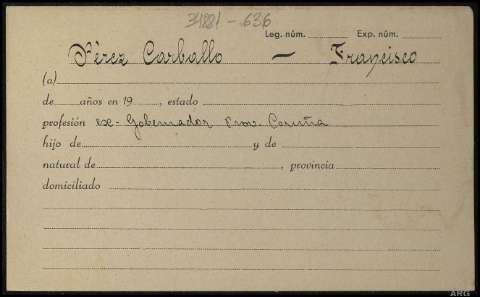 31281 - 636
Leg. núm. Exp. núm.
Pérez Carballo — Francisco
(a)
de años en 19 , estado
profesión ex-Gobernador Prov. Coruña
hijo de y de
natural de , provincia
domiciliado
ARG